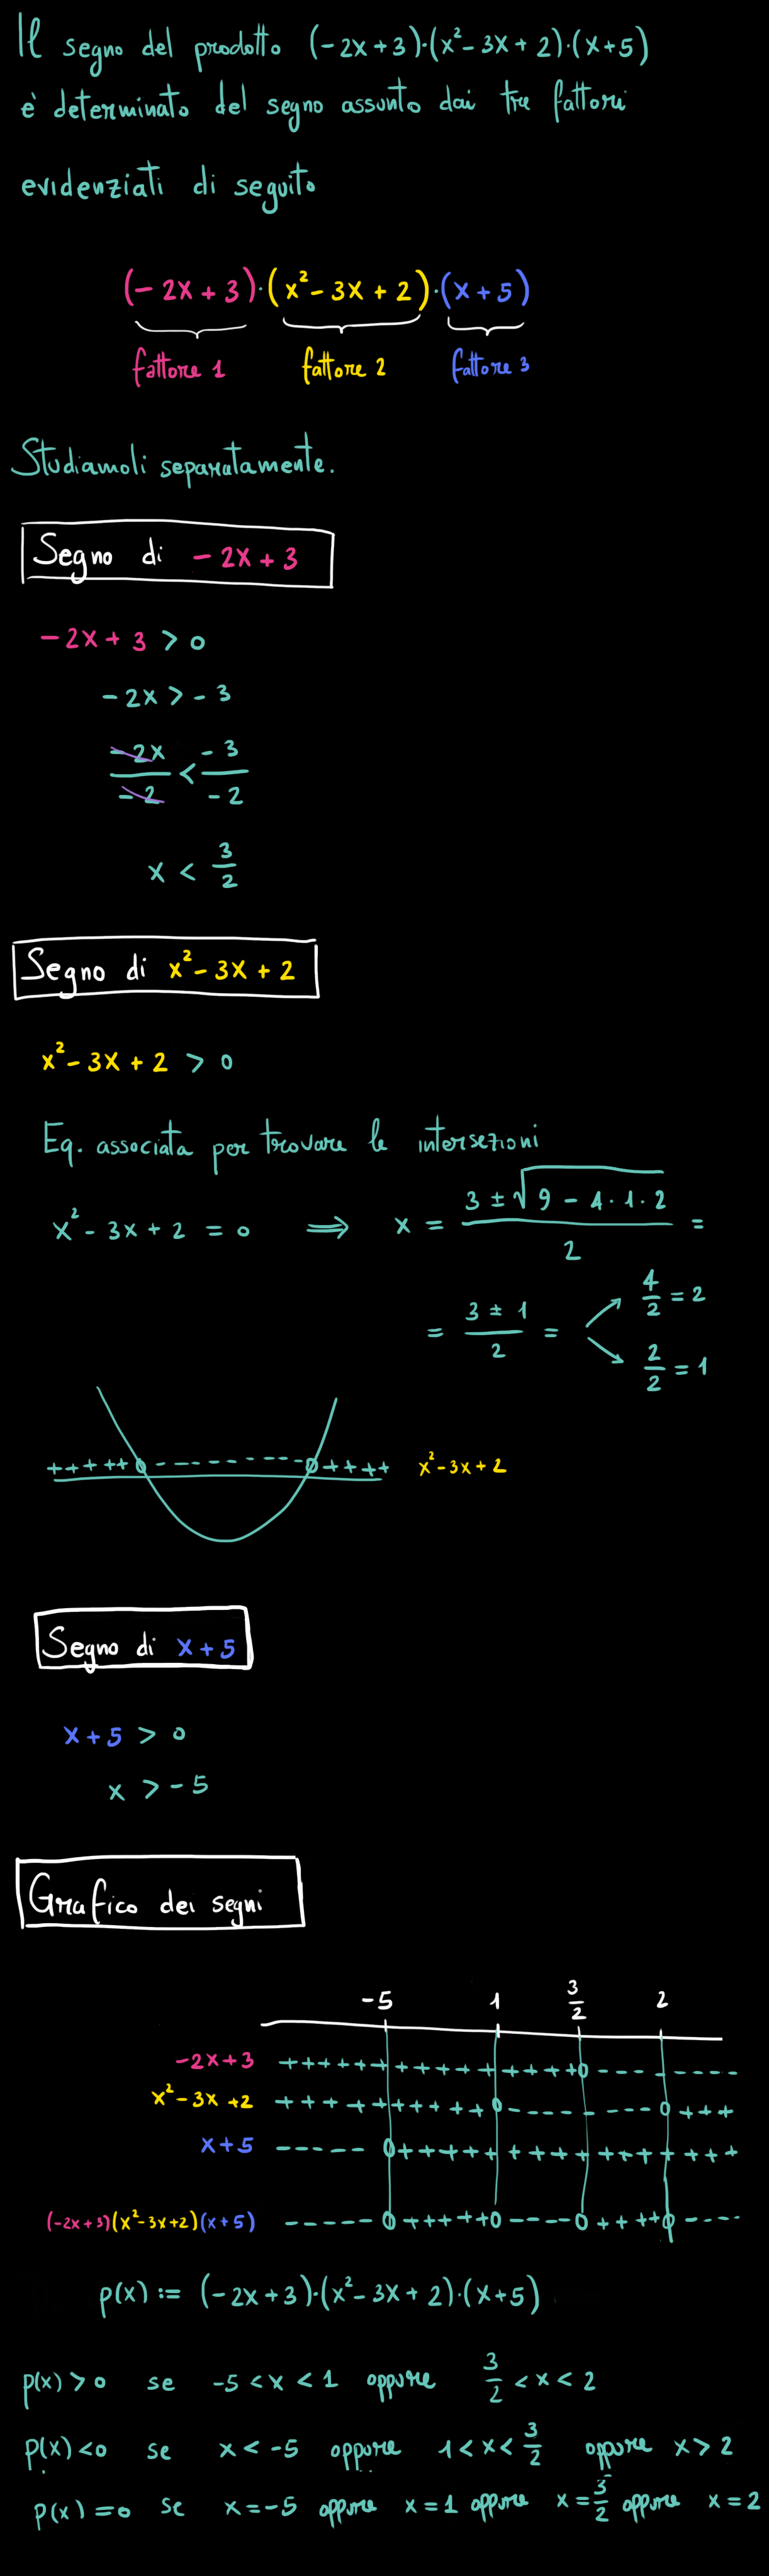 Il segno del prodotto (-2x+3)·(x²-3x+2)·(x+5)
è determinato del segno assunto dai tre fattori
evidenziati di seguito
(-2x+3)·(x²-3x+2)·(x+5)
fattore 1 fattore 2 fattore 3
Studiamoli separatamente.
Segno di -2x+3
-2x+3 > 0
-2x > -3
-2x/-2 < -3/-2
x < 3/2
Segno di x²-3x+2
x²-3x+2 > 0
Eq. associata per trovare le intersezioni
x²-3x+2 = 0 ⟹ x = (3 ± √(9-4·1·2))/2 =
= (3 ± 1)/2 = 4/2 = 2
2/2 = 1
+++++0----------0++++ x²-3x+2
Segno di x+5
x+5 > 0
x > -5
Grafico dei segni
-5 1 3/2 2
-2x+3
x²-3x+2
x+5
(-2x+3)(x²-3x+2)(x+5)
p(x) := (-2x+3)·(x²-3x+2)·(x+5)
p(x) > 0 se -5 < x < 1 oppure 3/2 < x < 2
p(x) < 0 se x < -5 oppure 1 < x < 3/2 oppure x > 2
p(x) = 0 se x = -5 oppure x = 1 oppure x = 3/2 oppure x = 2